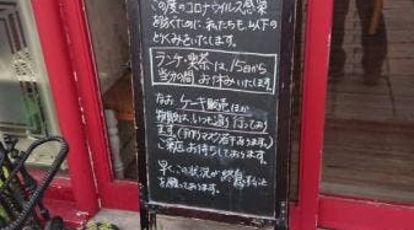 この度のコロナウイルス感染
を防ぐために、私たちも以下の
とりくみをいたします。
ランチ・喫茶は、15日から
当分の間 お休みいたします。
なお ケーキ販売ほか
物販は、いつも通り行っており
ます。(手作りマスク若干あります。)
ご来店お待ちしております。
早くこの状況が終息すること
を願っております。